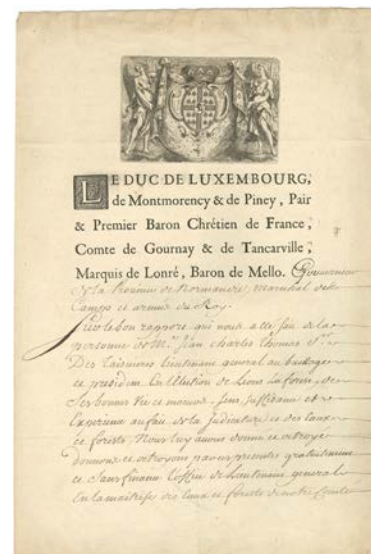 LE DUC DE LUXEMBOURG,
de Montmorency & de Piney, Pair
& Premier Baron Chrétien de France,
Comte de Gournay & de Tancarville,
Marquis de Lonré, Baron de Mello. Gouverneur
de la Province de Normandie, Marechal des
Camps et armées du Roy.
Sur le bon rapport qui nous a été fait de la
personne de Mr. Jean Charles Thomas
Des lieutenant general au bailliage
et president En L'Election de Lions la forest, de
Ses bonnes vie et moeurs, sens, suffisance et
Experience au fait de la Judicature et des Eaux
et forests, Nous luy avons donné et octroyé
donnons et octroyons par ces presentes gratuitement
et Sans finance L'office de Lieutenant general
En la maitrise des Eaux et forests de notre Comté